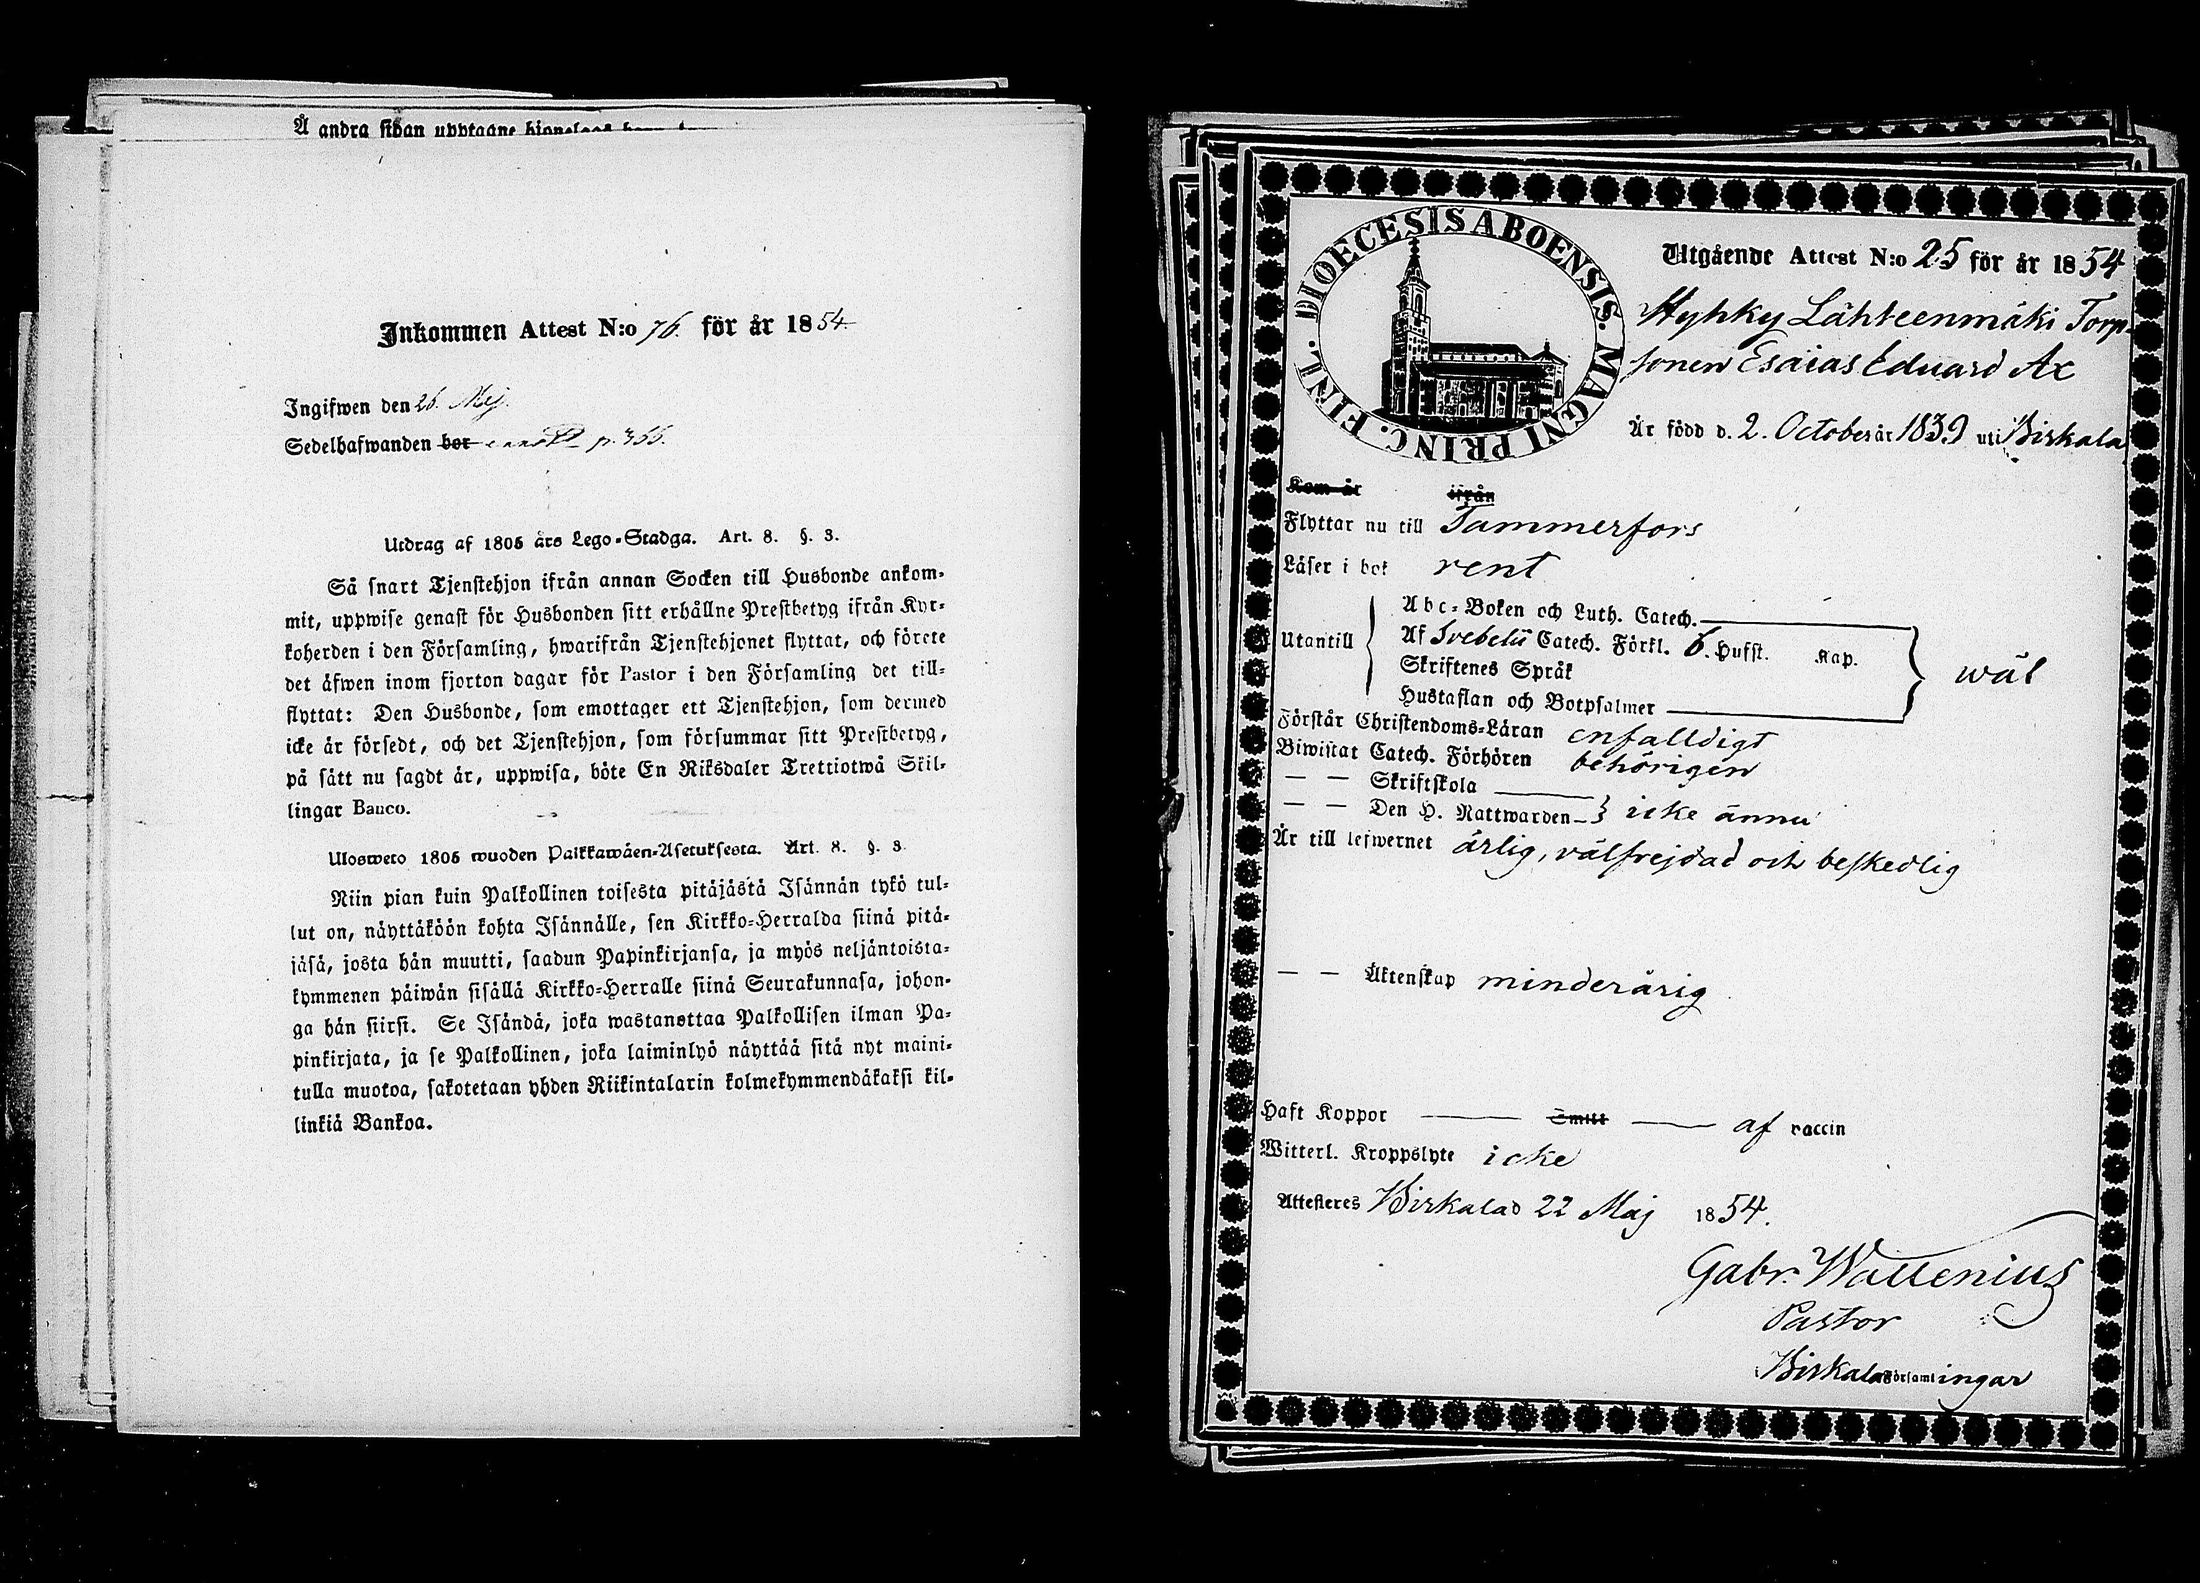 Å andra sidan upptagne
Inkommen Attest N:o 76. för år 1854.
Ingifwen den 26. Maj.
Sedelhafwanden bor p. 366.
Utdrag af 1805 års Lego-Stadga. Art. 8. §. 3.
Så snart Tjenstehjon ifrån annan Socken till Husbonde ankom-
mit, uppwise genast för Husbonden sitt erhållne Prestbetyg ifrån Kyr-
koherden i den Församling, hwarifrån Tjenstehjonet flyttat, och förete
det äfwen inom fjorton dagar för Pastor i den Församling det till-
flyttat: Den Husbonde, som emottager ett Tjenstehjon, som dermed
icke är försedt, och det Tjenstehjon, som försummar sitt Prestbetyg,
på sätt nu sagdt är, uppwisa, böte En Riksdaler Trettiotwå Skil-
lingar Banco.
Ulosweto 1805 wuoden Palkkawäen-Asetuksesta. Art. 8. §. 3.
Niin pian kuin Palkollinen toisesta pitäjästä Isännän tykö tul-
lut on, näyttäköön kohta Isännälle, sen Kirkko-Herralda siinä pitä-
jäsä, josta hän muutti, saadun Papinkirjansa, ja myös neljäntoista-
kymmenen päiwän sisällä Kirkko-Herralle siinä Seurakunnasa, johon-
ga hän siirsi. Se Isändä, joka wastanottaa Palkollisen ilman Pa-
pinkirjata, ja se Palkollinen, joka laiminlyö näyttää sitä nyt maini-
tulla muotoa, sakotetaan yhden Riikintalarin kolmekymmendäkaksi kil-
linkiä Bankoa.
DIOECESIS ABOENSIS. MAGNI PRINC. FINL.
Utgående Attest N:o 25 för år 1854
Hyhky Lähteenmäki Torp-
sonen Esaias Eduard Ax
Är född d. 2. October år 1839 uti Birkala
Kom år ifrån
Flyttar nu till Tammerfors
Läser i bok rent
Utantill
Abc-Boken och Luth. Catech.
Af Svebelii Catech. Förkl. 6. Hufst. Kap.
Skriftenes Språk
Hustaflan och Botpsalmer
wäl
Förstår Christendoms-Läran enfalldigt
Biwistat Catech. Förhören behörigen
— — Skriftskola
— — Den H. Nattwarden } icke ännu
Är till lefwernet ärlig, välfrejdad och beskedlig
— — Äktenskap minderårig
Haft Koppor — Smitt — af vaccin
Witterl. Kroppslyte icke
Attesteres Birkala d 22 Maj 1854.
Gabr. Wallenius
Pastor
Birkala Församlingar